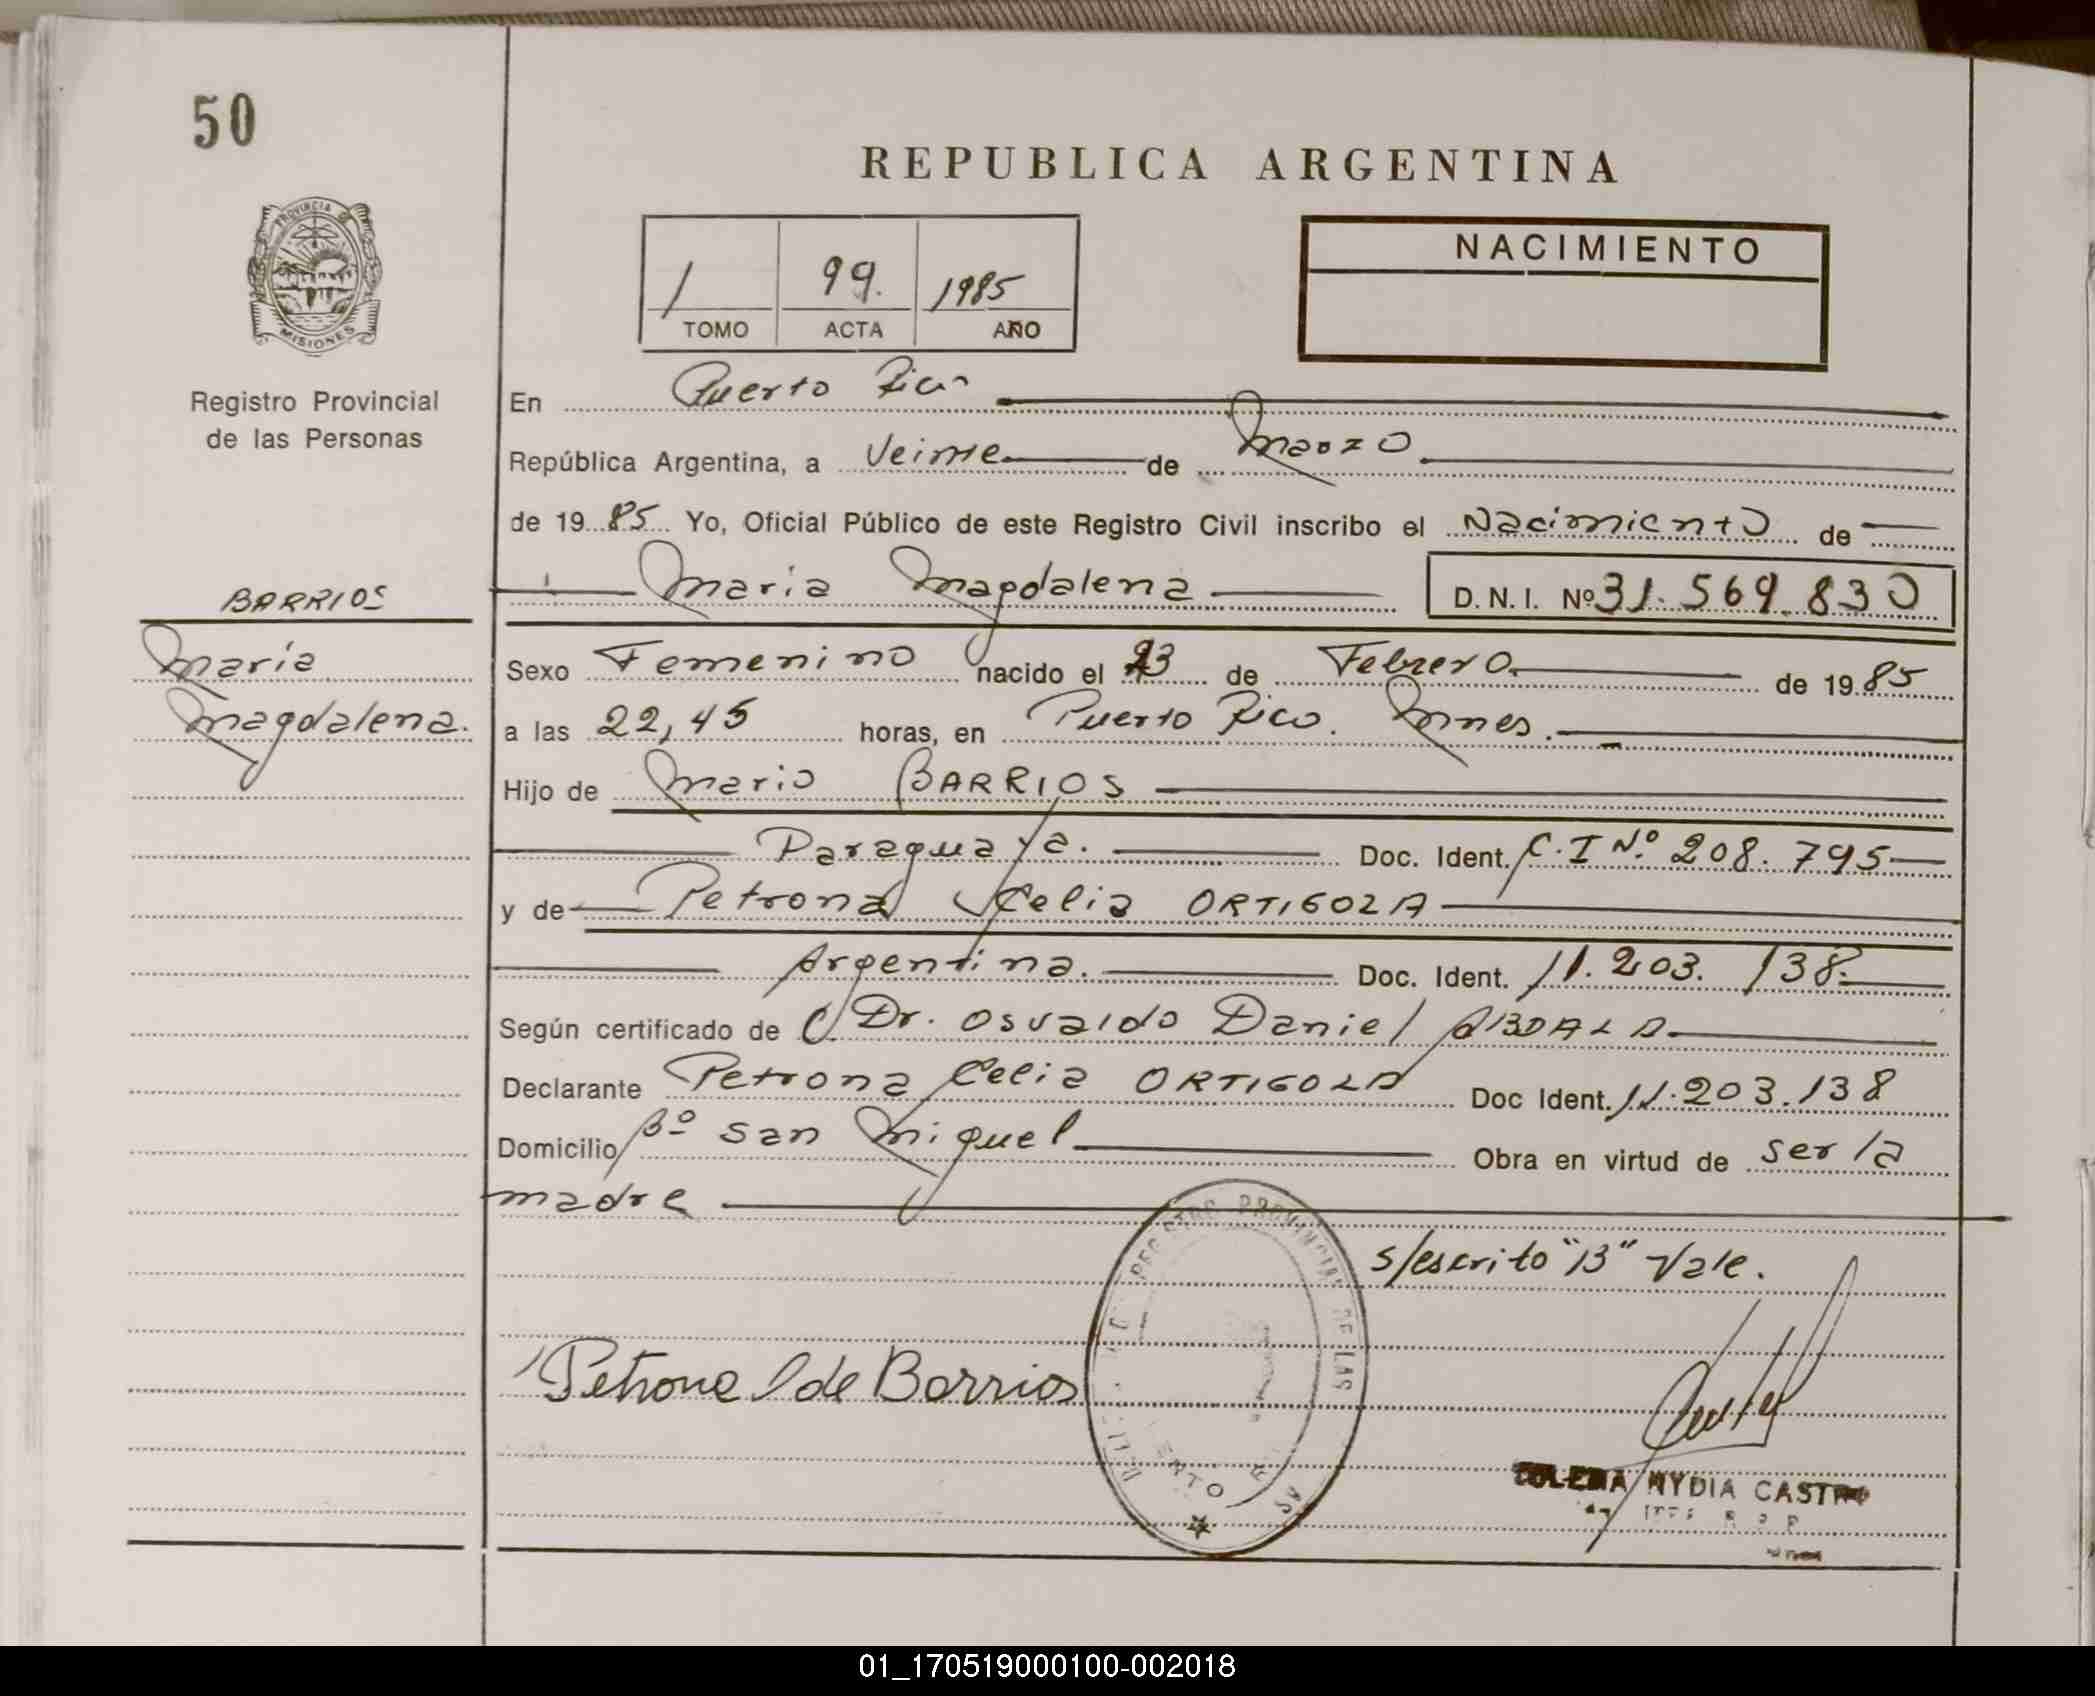 50
REPUBLICA ARGENTINA
PROVINCIA DE
MISIONES
Registro Provincial
de las Personas
1 99. 1985
TOMO ACTA AÑO
NACIMIENTO
En Puerto Rico
República Argentina, a Veinte de Marzo
de 19 85 Yo, Oficial Público de este Registro Civil inscribo el Nacimiento de
Maria Magdalena D.N.I. Nº 31.569.830
BARRIOS
María
Magdalena.
Sexo Femenino nacido el 13 de Febrero. de 19 85
a las 22,45 horas, en Puerto Rico. Mnes.
Hijo de Mario BARRIOS
Paraguaya. Doc. Ident. C.I Nº 208.795
y de Petrona Celia ORTIGOZA
Argentina. Doc. Ident. 11.203.138.
Según certificado de Dr. Osvaldo Daniel ABDALA
Declarante Petrona Celia ORTIGOZA Doc Ident. 11.203.138
Domicilio Bº San Miguel Obra en virtud de ser la
madre
s/escrito "13" Vale.
Petrona O de Barrios
REGISTRO PROVINCIAL DE LAS
NYDIA CASTRO
01_170519000100-002018